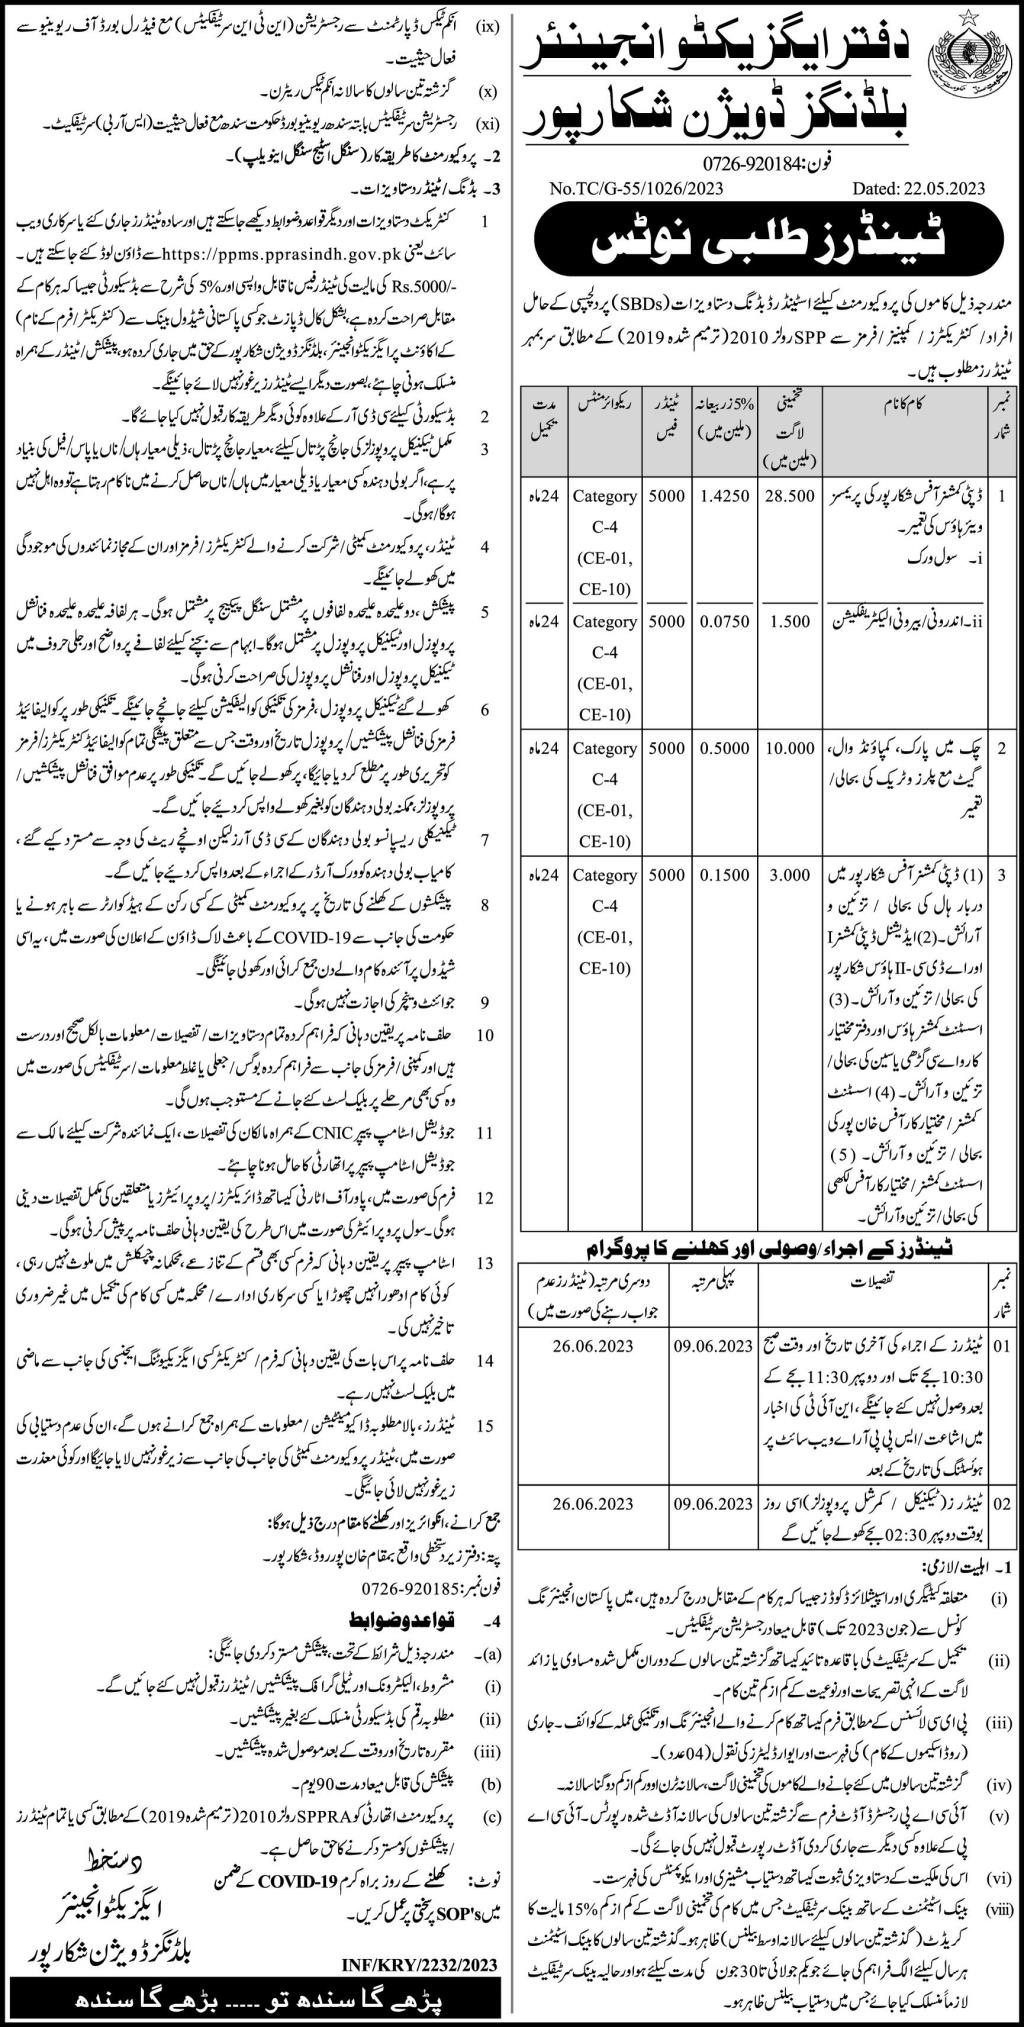 دفتر ایگزیکٹو انجینئر
بلڈنگز ڈویژن شکارپور
فون: 0726-920184
No.TC/G-55/1026/2023 Dated: 22.05.2023
ٹینڈرز طلبی نوٹس
مندرجہ ذیل کاموں کی پروکیورمنٹ کیلئے اسٹینڈرڈ بڈنگ دستاویزات (SBDs) پر دلچسپی کے حامل
افراد/ کنٹریکٹرز/ کمپنیز/ فرمز سے SPP رولز 2010 (ترمیم شدہ 2019) کے مطابق سربمہر
ٹینڈرز مطلوب ہیں۔
نمبر شمار | کام کا نام | تخمینی لاگت (ملین میں) | 5% زر بیعانہ (ملین میں) | ٹینڈر فیس | ریکوائرمنٹس | مدت تکمیل
1 | ڈپٹی کمشنر آفس شکارپور کی پریمسز
ویئر ہاؤس کی تعمیر۔
i۔ سول ورک | 28.500 | 1.4250 | 5000 | Category C-4 (CE-01, CE-10) | 24 ماہ
ii۔ اندرونی/ بیرونی الیکٹریفکیشن | 1.500 | 0.0750 | 5000 | Category C-4 (CE-01, CE-10) | 24 ماہ
2 | چک میں پارک، کمپاؤنڈ وال،
گیٹ مع پلرز و ٹریک کی بحالی/
تعمیر | 10.000 | 0.5000 | 5000 | Category C-4 (CE-01, CE-10) | 24 ماہ
3 | (1) ڈپٹی کمشنر آفس شکارپور میں
دربار ہال کی بحالی / تزئین و
آرائش۔ (2) ایڈیشنل ڈپٹی کمشنر I
اور اے ڈی سی-II ہاؤس شکارپور
کی بحالی/ تزئین و آرائش۔ (3)
اسسٹنٹ کمشنر ہاؤس اور دفتر مختیار
کار واے سی گڑھی یاسین کی بحالی/
تزئین و آرائش۔ (4) اسسٹنٹ
کمشنر/ مختیار کار آفس خان پور کی
بحالی/ تزئین و آرائش۔ (5)
اسسٹنٹ کمشنر/ مختیار کار آفس لکھی
کی بحالی/ تزئین و آرائش۔ | 3.000 | 0.1500 | 5000 | Category C-4 (CE-01, CE-10) | 24 ماہ
ٹینڈرز کے اجراء/وصولی اور کھلنے کا پروگرام
نمبر شمار | تفصیلات | پہلی مرتبہ | دوسری مرتبہ (ٹینڈرز عدم جواب رہنے کی صورت میں)
01 | ٹینڈرز کے اجراء کی آخری تاریخ اور وقت صبح
10:30 بجے تک اور دوپہر 11:30 بجے کے
بعد وصول نہیں کئے جائینگے، این آئی ٹی کی اخبار
میں اشاعت/ ایس پی پی آر اے ویب سائٹ پر
ہوسٹنگ کی تاریخ کے بعد | 09.06.2023 | 26.06.2023
02 | ٹینڈرز (ٹیکنیکل / کمرشل پروپوزلز) اسی روز
بوقت دوپہر 02:30 بجے کھولے جائیں گے | 09.06.2023 | 26.06.2023
1۔ اہلیت/لازمی:
(i) متعلقہ کیٹیگری اور اسپیشلائزڈ کوڈز جیسا کہ ہر کام کے مقابل درج کردہ ہیں، میں پاکستان انجینئرنگ
کونسل سے (جون 2023 تک) قابل میعاد رجسٹریشن سرٹیفکیٹس۔
(ii) تکمیل کے سرٹیفکیٹ کی باقاعدہ تائید کیساتھ گزشتہ تین سالوں کے دوران مکمل شدہ مساوی یا زائد
لاگت کے انہی تصریحات اور نوعیت کے کم از کم تین کام۔
(iii) پی ای سی لائسنس کے مطابق فرم کیساتھ کام کرنے والے انجینئرنگ اور تکنیکی عملہ کے کوائف۔ جاری
(روڈ اسکیموں کے کام) کی فہرست اور ایوارڈ لیٹرز کی نقول (04 عدد)۔
(iv) گزشتہ تین سالوں میں کئے جانے والے کاموں کی تخمینی لاگت، سالانہ ٹرن اوور کم از کم دوگنا سالانہ۔
(v) آئی سی اے پی رجسٹرڈ آڈٹ فرم سے گزشتہ تین سالوں کی سالانہ آڈٹ شدہ رپورٹس۔ آئی سی اے
پی کے علاوہ کسی دیگر سے جاری کردی آڈٹ رپورٹ قبول نہیں کی جائے گی۔
(vi) اس کی ملکیت کے دستاویزی ثبوت کیساتھ دستیاب مشینری اور ایکوپمنٹس کی فہرست۔
(viii) بینک اسٹیٹمنٹ کے ساتھ بینک سرٹیفکیٹ جس میں کام کی تخمینی لاگت کے کم از کم 15% مالیت کا
کریڈٹ (گذشتہ تین سالوں کیلئے سالانہ اوسط بیلنس) ظاہر ہو۔ گذشتہ تین سالوں کا بینک اسٹیٹمنٹ
ہر سال کیلئے الگ فراہم کی جائے جو یکم جولائی تا 30 جون کی مدت کیلئے ہو اور حالیہ بینک سرٹیفکیٹ
لازماً منسلک کیا جائے جس میں دستیاب بیلنس ظاہر ہو۔
(ix) انکم ٹیکس ڈپارٹمنٹ سے رجسٹریشن (این ٹی این سرٹیفکیٹس) مع فیڈرل بورڈ آف ریوینیو سے
فعال حیثیت۔
(x) گزشتہ تین سالوں کا سالانہ انکم ٹیکس ریٹرن۔
(xi) رجسٹریشن سرٹیفکیٹس بابتہ سندھ ریوینیو بورڈ حکومت سندھ مع فعال حیثیت (ایس آر بی) سرٹیفکیٹ۔
2۔ پروکیورمنٹ کا طریقہ کار (سنگل اسٹیج سنگل اینویلپ)۔
3۔ بڈنگ/ ٹینڈر دستاویزات۔
1 کنٹریکٹ دستاویزات اور دیگر قواعد و ضوابط دیکھے جاسکتے ہیں اور سادہ ٹینڈرز جاری کئے یا سرکاری ویب
سائٹ یعنی https://ppms.pprasindh.gov.pk سے ڈاؤن لوڈ کئے جاسکتے ہیں۔
Rs.5000/- کی مالیت کی ٹینڈر فیس ناقابل واپسی اور 5% کی شرح سے بڈ سیکورٹی جیسا کہ ہر کام کے
مقابل صراحت کردہ ہے، بشکل کال ڈپازٹ جو کسی پاکستانی شیڈول بینک سے (کنٹریکٹر/ فرم کے نام)
کے اکاؤنٹ پر ایگزیکٹو انجینئر، بلڈنگز ڈویژن شکارپور کے حق میں جاری کردہ ہو، پیشکش/ ٹینڈر کے ہمراہ
منسلک ہونی چاہئے، بصورت دیگر ایسے ٹینڈرز زیر غور نہیں لائے جائینگے۔
2 بڈ سیکورٹی کیلئے سی ڈی آر کے علاوہ کوئی دیگر طریقہ کار قبول نہیں کیا جائے گا۔
3 مکمل ٹیکنیکل پروپوزلز کی جانچ پڑتال کیلئے، معیار جانچ پڑتال، ذیلی معیار ہاں/ ناں یا پاس/ فیل کی بنیاد
پر ہے، اگر بولی دہندہ کسی معیار یا ذیلی معیار میں ہاں/ ناں حاصل کرنے میں ناکام رہتا ہے تو وہ اہل نہیں
ہوگا/ ہوگی۔
4 ٹینڈر، پروکیورمنٹ کمیٹی/ شرکت کرنے والے کنٹریکٹرز/ فرمز اور ان کے مجاز نمائندوں کی موجودگی
میں کھولے جائینگے۔
5 پیشکش، دو علیحدہ علیحدہ لفافوں پر مشتمل سنگل پیکیج پر مشتمل ہوگی۔ ہر لفافہ علیحدہ علیحدہ فنانشل
پروپوزل اور ٹیکنیکل پروپوزل پر مشتمل ہوگا۔ ابہام سے بچنے کیلئے لفافے پر واضح اور جلی حروف میں
ٹیکنیکل پروپوزل اور فنانشل پروپوزل کی صراحت کرنی ہوگی۔
6 کھولے گئے ٹیکنیکل پروپوزل، فرمز کی تکنیکی کوالیفکیشن کیلئے جانچے جائینگے۔ تکنیکی طور پر کوالیفائیڈ
فرمز کی فنانشل پیشکشیں/ پروپوزل تاریخ اور وقت جس سے متعلق پیشگی تمام کوالیفائیڈ کنٹریکٹرز/ فرمز
کو تحریری طور پر مطلع کردیا جائیگا، پر کھولے جائیں گے۔ تکنیکی طور پر عدم موافق فنانشل پیشکشیں/
پروپوزلز، ممکنہ بولی دہندگان کو بغیر کھولے واپس کردیئے جائیں گے۔
7 ٹیکنیکلی ریسپانسو بولی دہندگان کے سی ڈی آرز لیکن اونچے ریٹ کی وجہ سے مسترد کیے گئے،
کامیاب بولی دہندہ کو ورک آرڈر کے اجراء کے بعد واپس کردیئے جائیں گے۔
8 پیشکشوں کے کھلنے کی تاریخ پر پروکیورمنٹ کمیٹی کے کسی رکن کے ہیڈکوارٹر سے باہر ہونے یا
حکومت کی جانب سے COVID-19 کے باعث لاک ڈاؤن کے اعلان کی صورت میں، یہ اسی
شیڈول پر آئندہ کام والے دن جمع کرائی اور کھولی جائینگی۔
9 جوائنٹ وینچر کی اجازت نہیں ہوگی۔
10 حلف نامہ پر یقین دہانی کہ فراہم کردہ تمام دستاویزات/ تفصیلات/ معلومات بالکل صحیح اور درست
ہیں اور کمپنی/ فرمز کی جانب سے فراہم کردہ بوگس/ جعلی یا غلط معلومات/ سرٹیفکیٹس کی صورت میں
وہ کسی بھی مرحلے پر بلیک لسٹ کئے جانے کے مستوجب ہوں گی۔
11 جوڈیشل اسٹامپ پیپر CNIC کے ہمراہ مالکان کی تفصیلات، ایک نمائندہ شرکت کیلئے مالک سے
جوڈیشل اسٹامپ پیپر پر اتھارٹی کا حامل ہونا چاہئے۔
12 فرم کی صورت میں، پاور آف اٹارنی کیساتھ ڈائریکٹرز/ پروپرائیٹرز یا متعلقین کی مکمل تفصیلات دینی
ہوگی۔ سول پروپرائیٹر کی صورت میں اس طرح کی یقین دہانی حلف نامہ پر پیش کرنی ہوگی۔
13 اسٹامپ پیپر پر یقین دہانی کہ فرم کسی بھی قسم کے تنازعے، محکمانہ چپقلش میں ملوث نہیں رہی،
کوئی کام ادھورا نہیں چھوڑا یا کسی سرکاری ادارے/ محکمہ میں کسی کام کی تکمیل میں غیر ضروری
تاخیر نہیں کی۔
14 حلف نامہ پر اس بات کی یقین دہانی کہ فرم/ کنٹریکٹر کسی ایگزیکیوٹنگ ایجنسی کی جانب سے ماضی
میں بلیک لسٹ نہیں رہے۔
15 ٹینڈرز، بالا مطلوبہ ڈاکیومینٹیشن/ معلومات کے ہمراہ جمع کرانے ہوں گے، ان کی عدم دستیابی کی
صورت میں، ٹینڈر پروکیورمنٹ کمیٹی کی جانب کی جانب سے زیر غور نہیں لایا جائیگا اور کوئی معذرت
زیر غور نہیں لائی جائیگی۔
جمع کرانے، انکوائریز اور کھلنے کا مقام درج ذیل ہوگا:
پتہ: دفتر زیر دستخطی واقع بمقام خان پور روڈ، شکارپور۔
فون نمبر: 0726-920185
4۔ قواعد و ضوابط
(a)۔ مندرجہ ذیل شرائط کے تحت، پیشکش مسترد کردی جائیگی:
(i) مشروط، الیکٹرونک اور ٹیلی گرافک پیشکشیں/ ٹینڈرز قبول نہیں کئے جائیں گے۔
(ii) مطلوبہ رقم کی بڈ سیکورٹی منسلک کئے بغیر پیشکشیں۔
(iii) مقررہ تاریخ اور وقت کے بعد موصول شدہ پیشکشیں۔
(b) پیشکش کی قابل میعاد مدت 90 یوم۔
(c) پروکیورمنٹ اتھارٹی کو SPPRA رولز 2010 (ترمیم شدہ 2019) کے مطابق کسی یا تمام ٹینڈرز
/ پیشکشوں کو مسترد کرنے کا حق حاصل ہے۔
نوٹ: کھلنے کے روز براہ کرم COVID-19 کے ضمن
میں SOP's پر سختی پر عمل کریں۔
دستخط
ایگزیکٹو انجینئر
بلڈنگز ڈویژن شکارپور
INF/KRY/2232/2023
پڑھے گا سندھ تو ..... بڑھے گا سندھ